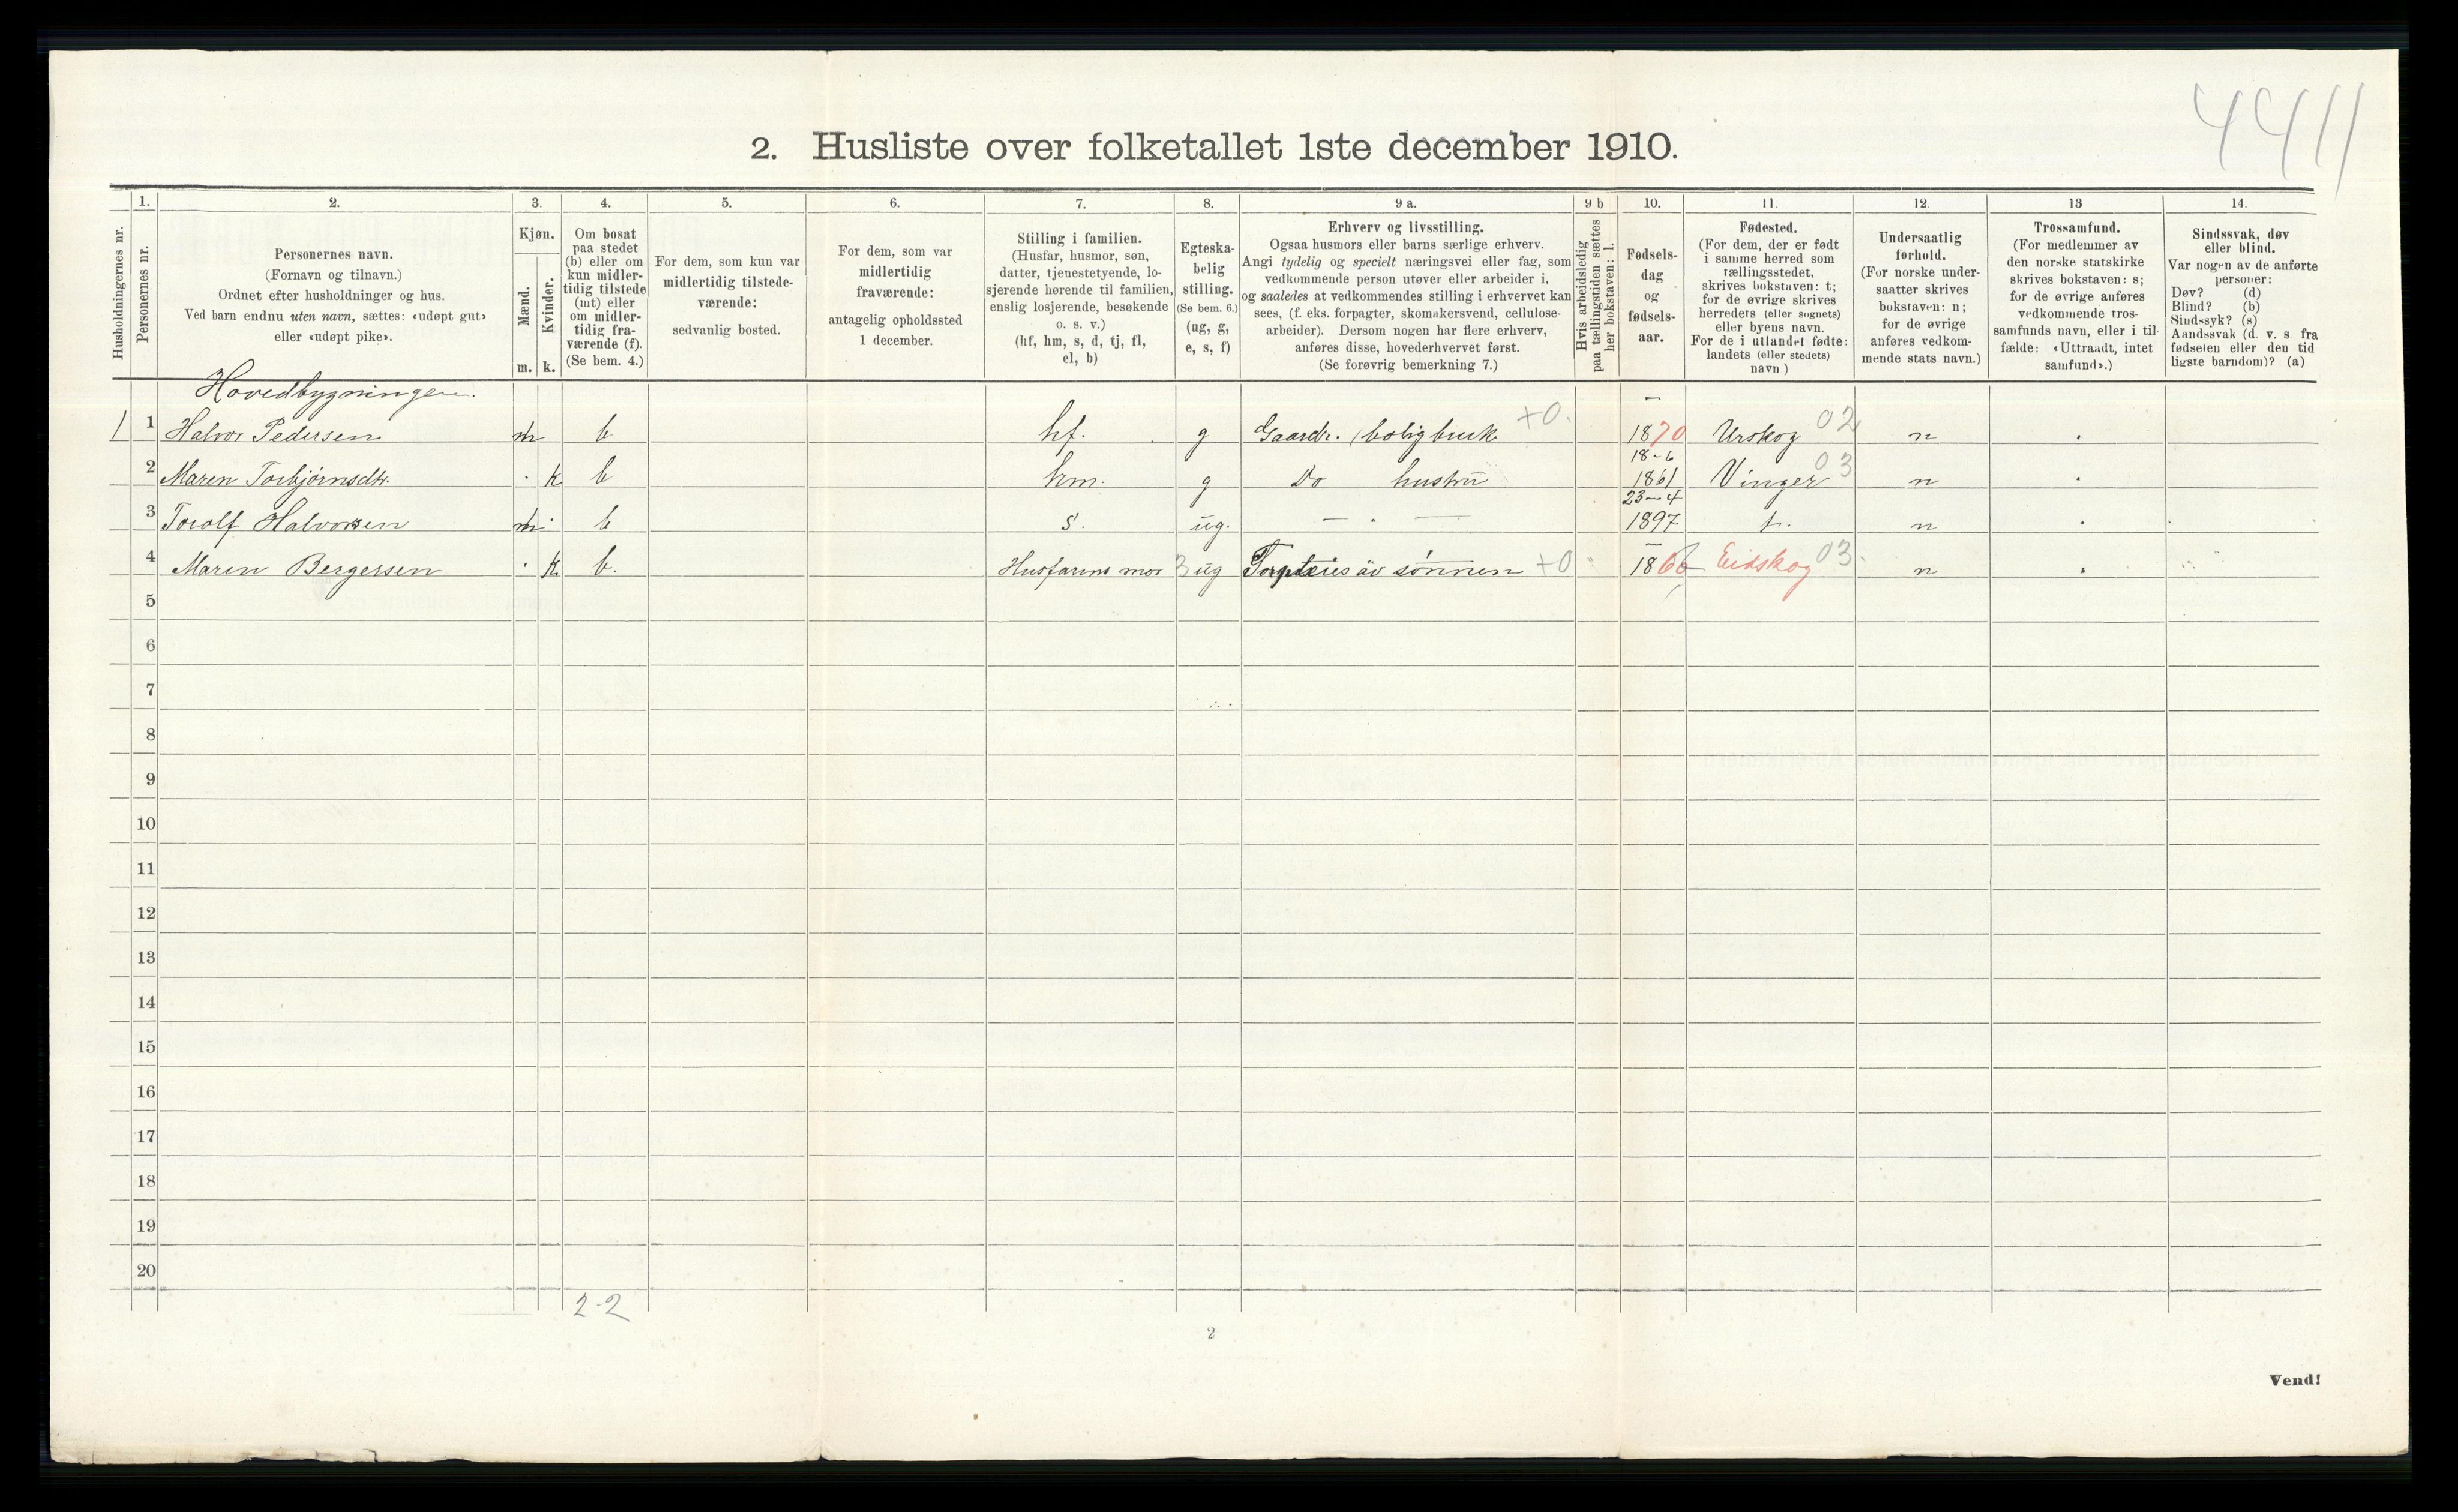 4411
2. Husliste over folketallet 1ste december 1910.
Husholdningernes nr.
1.
Personernes nr.
2.
Personernes navn.
(Fornavn og tilnavn.)
Ordnet efter husholdninger og hus.
Ved barn endnu uten navn, sættes: «udøpt gut»
eller «udøpt pike».
3.
Kjøn.
Mænd.
Kvinder.
m. k.
4.
Om bosat
paa stedet
(b) eller om
kun midler-
tidig tilstede
(mt) eller
om midler-
tidig fra-
værende (f).
(Se bem. 4.)
5.
For dem, som kun var
midlertidig tilstede-
værende:
sedvanlig bosted.
6.
For dem, som var
midlertidig
fraværende:
antagelig opholdssted
1 december.
7.
Stilling i familien.
(Husfar, husmor, søn,
datter, tjenestetyende, lo-
sjerende hørende til familien,
enslig losjerende, besøkende
o. s. v.)
(hf, hm, s, d, tj, fl,
el, b)
8.
Egteska-
belig
stilling.
(Se bem. 6.)
(ug, g,
e, s, f)
9 a.
Erhverv og livsstilling.
Ogsaa husmors eller barns særlige erhverv.
Angi tydelig og specielt næringsvei eller fag, som
vedkommende person utøver eller arbeider i,
og saaledes at vedkommendes stilling i erhvervet kan
sees, (f. eks. forpagter, skomakersvend, cellulose-
arbeider). Dersom nogen har flere erhverv,
anføres disse, hovederhvervet først.
(Se forøvrig bemerkning 7.)
9 b
Hvis arbeidsledig
paa tællingstiden sættes
her bokstaven: l.
10.
Fødsels-
dag
og
fødsels-
aar.
11.
Fødested.
(For dem, der er født
i samme herred som
tællingsstedet,
skrives bokstaven: t;
for de øvrige skrives
herredets (eller sognets)
eller byens navn.
For de i utlandet fødte:
landets (eller stedets)
navn )
12.
Undersaatlig
forhold.
(For norske under-
saatter skrives
bokstaven: n;
for de øvrige
anføres vedkom-
mende stats navn.)
13
Trossamfund.
(For medlemmer av
den norske statskirke
skrives bokstaven: s;
for de øvrige anføres
vedkommende tros-
samfunds navn, eller i til-
fælde: «Uttraadt, intet
samfund».)
14.
Sindssvak, døv
eller blind.
Var nogen av de anførte
personer:
Døv? (d)
Blind? (b)
Sindssyk? (s)
Aandssvak (d. v. s. fra
fødselen eller den tid
ligste barndom)? (a)
Hovedbygningen.
1 1 Halvor Pedersen m b hf. g Gaardbr. (boligbruk +0. – 1870 Urskog 02 n
2 Maren Torbjørnsdtr. k b hm. g Do hustru 18-6 1861 Vinger 03 n
3 Torolf Halvorsen m b s. ug. – – 23-4 1897 t. n
4 Maren Bergersen k b. Husfarens mor 3 ug Forpleies av sønnen +0 – Eidskog 03 n
5
6
7
8
9
10
11
12
13
14
15
16
17
18
19
20
2-2
2
Vend!